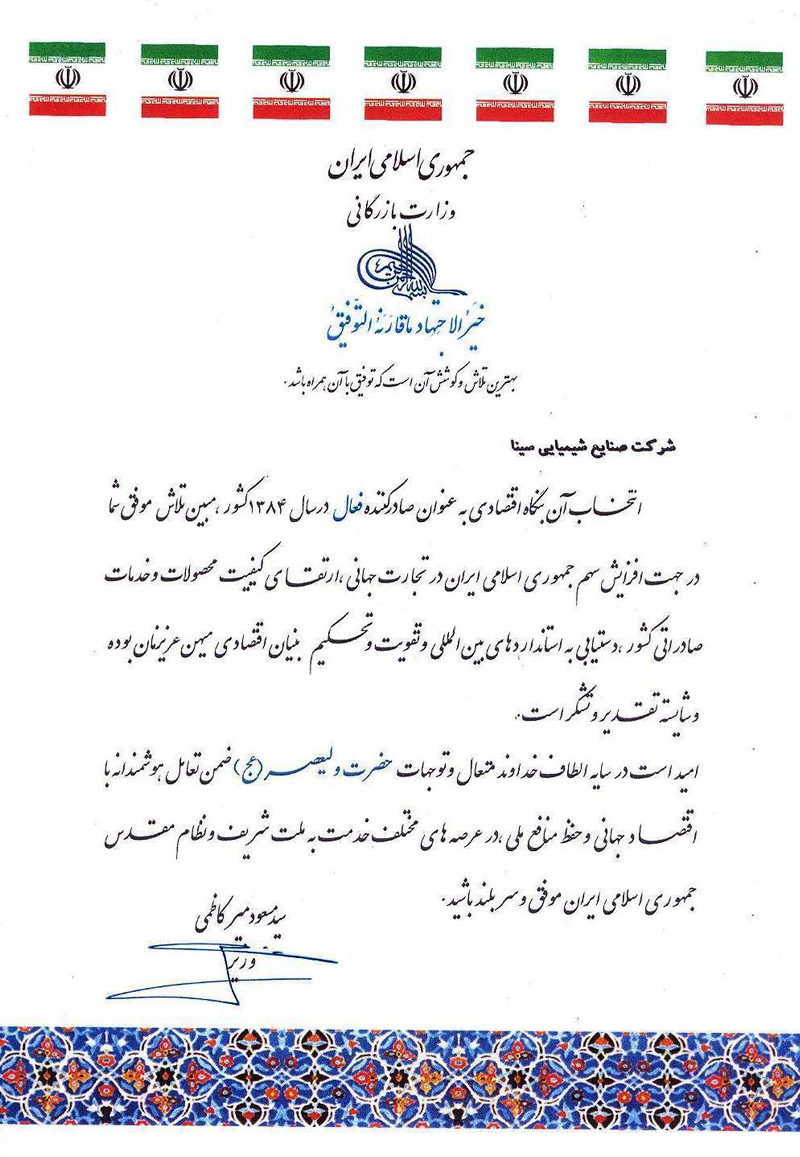 جمهوری اسلامی ایران
وزارت بازرگانی
بسم الله الرحمن الرحیم
خیرُ الاجتهاد ما قارنهُ التّوفیقُ
بهترین تلاش و کوشش آن است که توفیق با آن همراه باشد.
شرکت صنایع شیمیایی سینا
انتخاب آن بنگاه اقتصادی به عنوان صادرکننده فعال در سال ۱۳۸۴ کشور، مبین تلاش موفق شما
در جهت افزایش سهم جمهوری اسلامی ایران در تجارت جهانی، ارتقای کیفیت محصولات و خدمات
صادراتی کشور، دستیابی به استانداردهای بین المللی و تقویت و تحکیم بنیان اقتصادی میهن عزیزمان بوده
و شایسته تقدیر و تشکر است.
امید است در سایه الطاف خداوند متعال و توجهات حضرت ولیعصر (عج) ضمن تعامل هوشمندانه با
اقتصاد جهانی و حفظ منافع ملی، در عرصه های مختلف خدمت به ملت شریف و نظام مقدس
جمهوری اسلامی ایران موفق و سربلند باشید.
سید مسعود میرکاظمی
وزیر